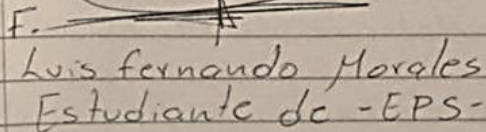 F.
Luis fernando Morales
Estudiante de -EPS-